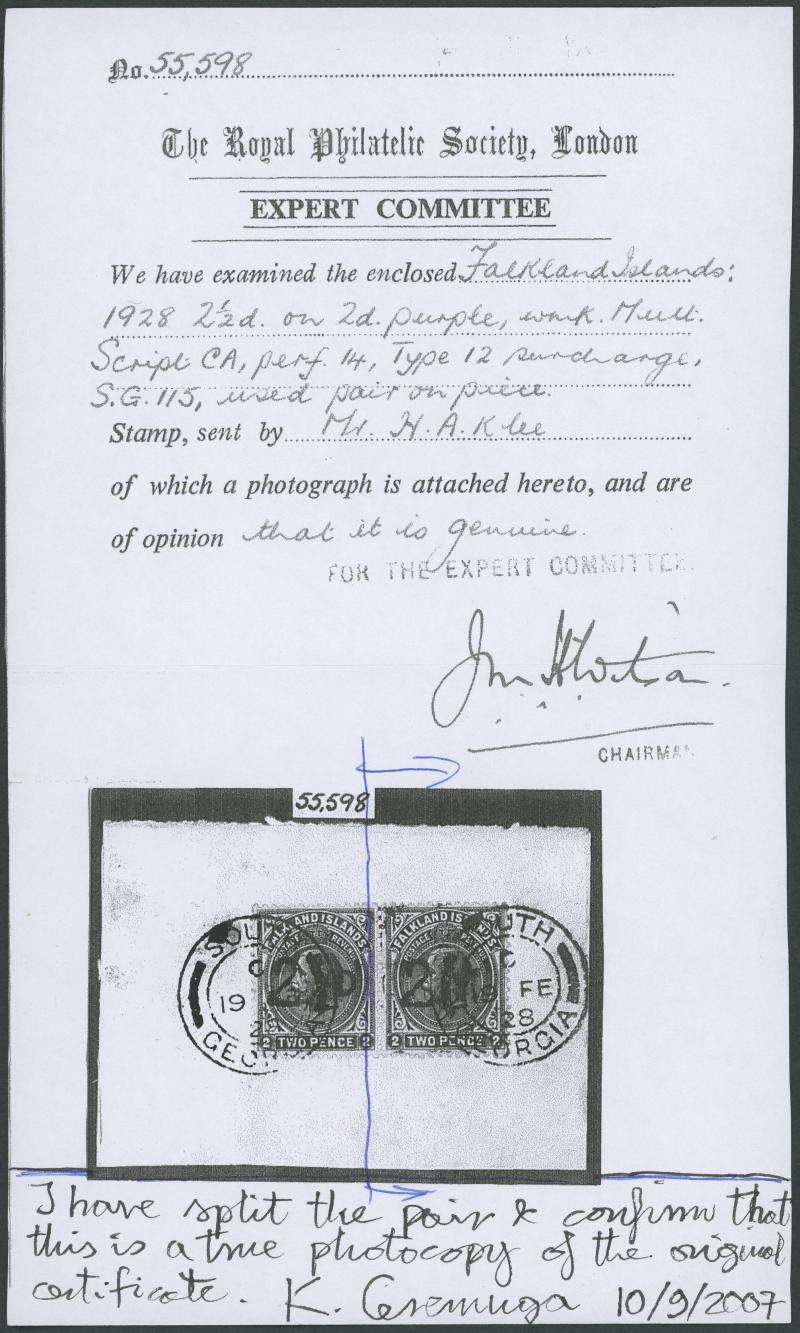 No. 55,598
The Royal Philatelic Society, London
EXPERT COMMITTEE
We have examined the enclosed Falkland Islands:
1928 2½d. on 2d. purple, wmk. Mult.
Script CA, perf. 14, Type 12 surcharge,
S.G. 115, used pair on piece.
Stamp, sent by Mr. H. A. Klee
of which a photograph is attached hereto, and are
of opinion that it is genuine.
FOR THE EXPERT COMMITTEE.
CHAIRMAN
55,598
SOU
C
19
28
GEOR
FALKLAND ISLANDS
POSTAGE REVENUE
2½D
2 TWO PENCE 2
FALKLAND ISLANDS
POSTAGE
2½
2 TWO PENCE 2
OUTH
C
19 FE
28
ORGIA
I have split the pair & confirm that
this is a true photocopy of the original
certificate. K. Ceremuga 10/9/2007